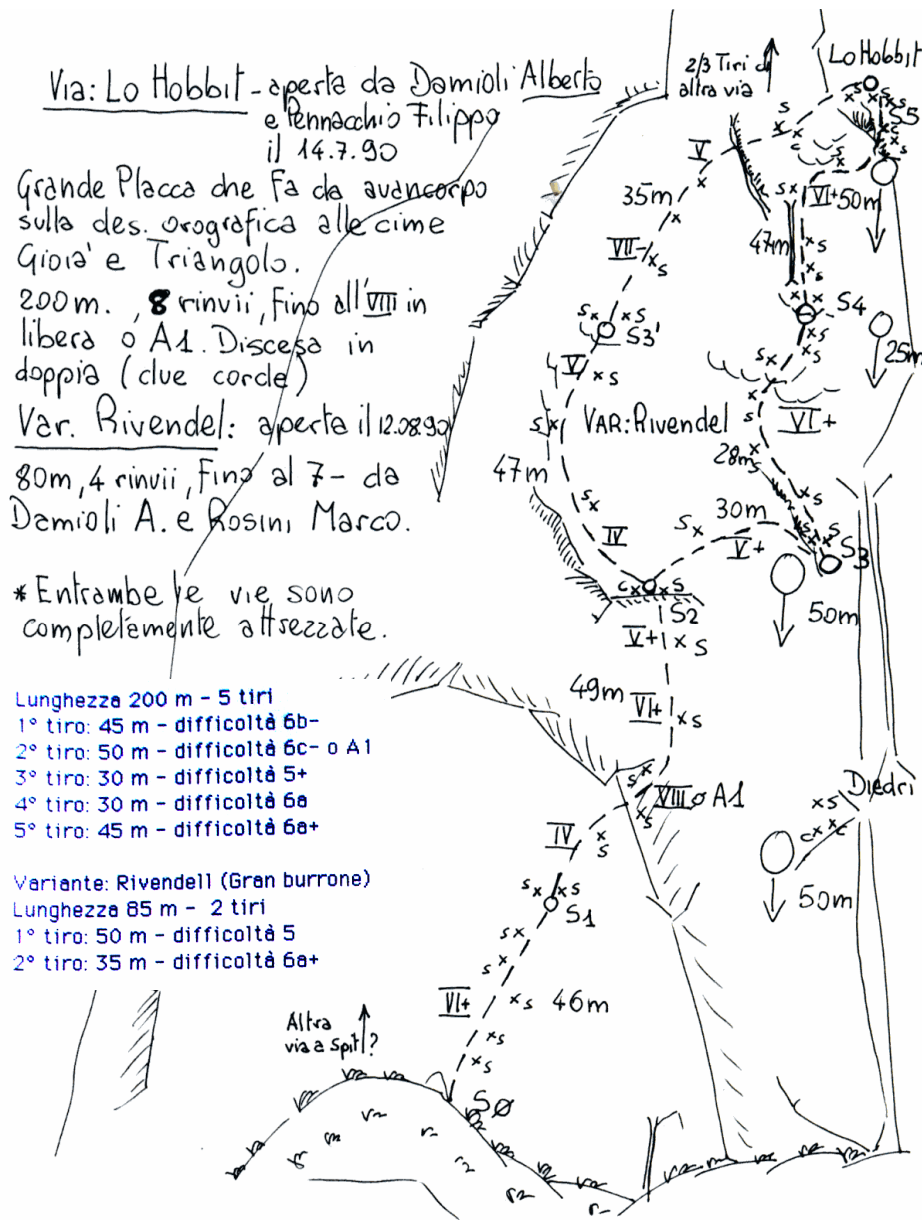 Via: Lo Hobbit - aperta da Damioli Alberto
e Pennacchio Filippo
il 14.7.90
Grande Placca che fa da avancorpo
sulla des. orografica alle cime
Gioià e Triangolo.
200m. , 8 rinvii, Fino all'VIII in
libera o A1. Discesa in
doppia (due corde)
Var. Rivendel: aperta il 12.08.90
80m, 4 rinvii, Fino al 7- da
Damioli A. e Rosini Marco.
* Entrambe le vie sono
completamente attrezzate.
Lunghezza 200 m - 5 tiri
1° tiro: 45 m - difficoltà 6b-
2° tiro: 50 m - difficoltà 6c- o A1
3° tiro: 30 m - difficoltà 5+
4° tiro: 30 m - difficoltà 6a
5° tiro: 45 m - difficoltà 6a+
Variante: Rivendell (Gran burrone)
Lunghezza 85 m - 2 tiri
1° tiro: 50 m - difficoltà 5
2° tiro: 35 m - difficoltà 6a+
2/3 Tiri di
altra via
Lo Hobbit
S5
V
35m
VI+ 50m
VII-
47m
S3'
S4
25m
V
VAR: Rivendel
VI+
28m
47m
30m
IV
V+
S3
50m
S2
V+
49m
VI+
Diedri
VIII o A1
IV
50m
S1
VI+
46m
Altra
via a spit?
SØ